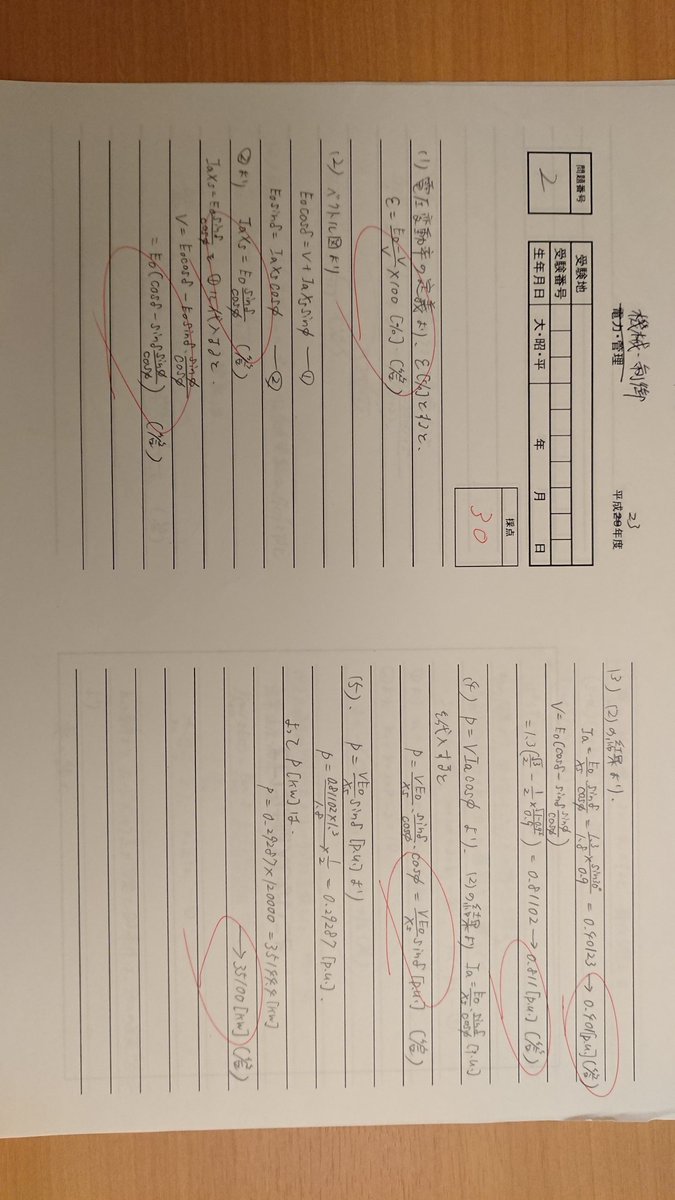 機械・制御
電力・管理
平成20年度
23
問題番号
2
受験地
受験番号
生年月日 大・昭・平 年 月 日
採点
30
(1) 電圧変動率の定義より、ε[%]とすると、
ε = (E0-V)/V ×100 [%] (答)
(2) ベクトル図より
E0cosδ = V + IaXs sinφ ―①
E0sinδ = IaXs cosφ ―②
②より IaXs = E0 sinδ/cosφ (答)
IaXs = E0 sinδ/cosφ を①に代入すると、
V = E0cosδ - E0sinδ・sinφ/cosφ
= E0(cosδ - sinδ sinφ/cosφ) (答)
(3) (2)の結果より、
Ia = E0/Xs・sinδ/cosφ = 1.3/1.8 × sin30°/0.9 = 0.40123 → 0.401[p.u.] (答)
V = E0(cosδ - sinδ sinφ/cosφ)
= 1.3(√3/2 - 1/2 × √(1-0.9²)/0.9) = 0.81102 → 0.811[p.u.] (答)
(4) P = VIacosφ より、(2)の結果より Ia = E0/Xs・sinδ/cosφ [p.u.]
を代入すると
P = VE0/Xs・sinδ/cosφ・cosφ = VE0/Xs sinδ [p.u.] (答)
(5). P = VE0/Xs sinδ [p.u.] より
P = 0.81102×1.3/1.8 × 1/2 = 0.29287 [p.u.].
よって P[kW]は、
P = 0.29287×120000 = 35144.4 [kW]
→ 35100 [kW] (答)